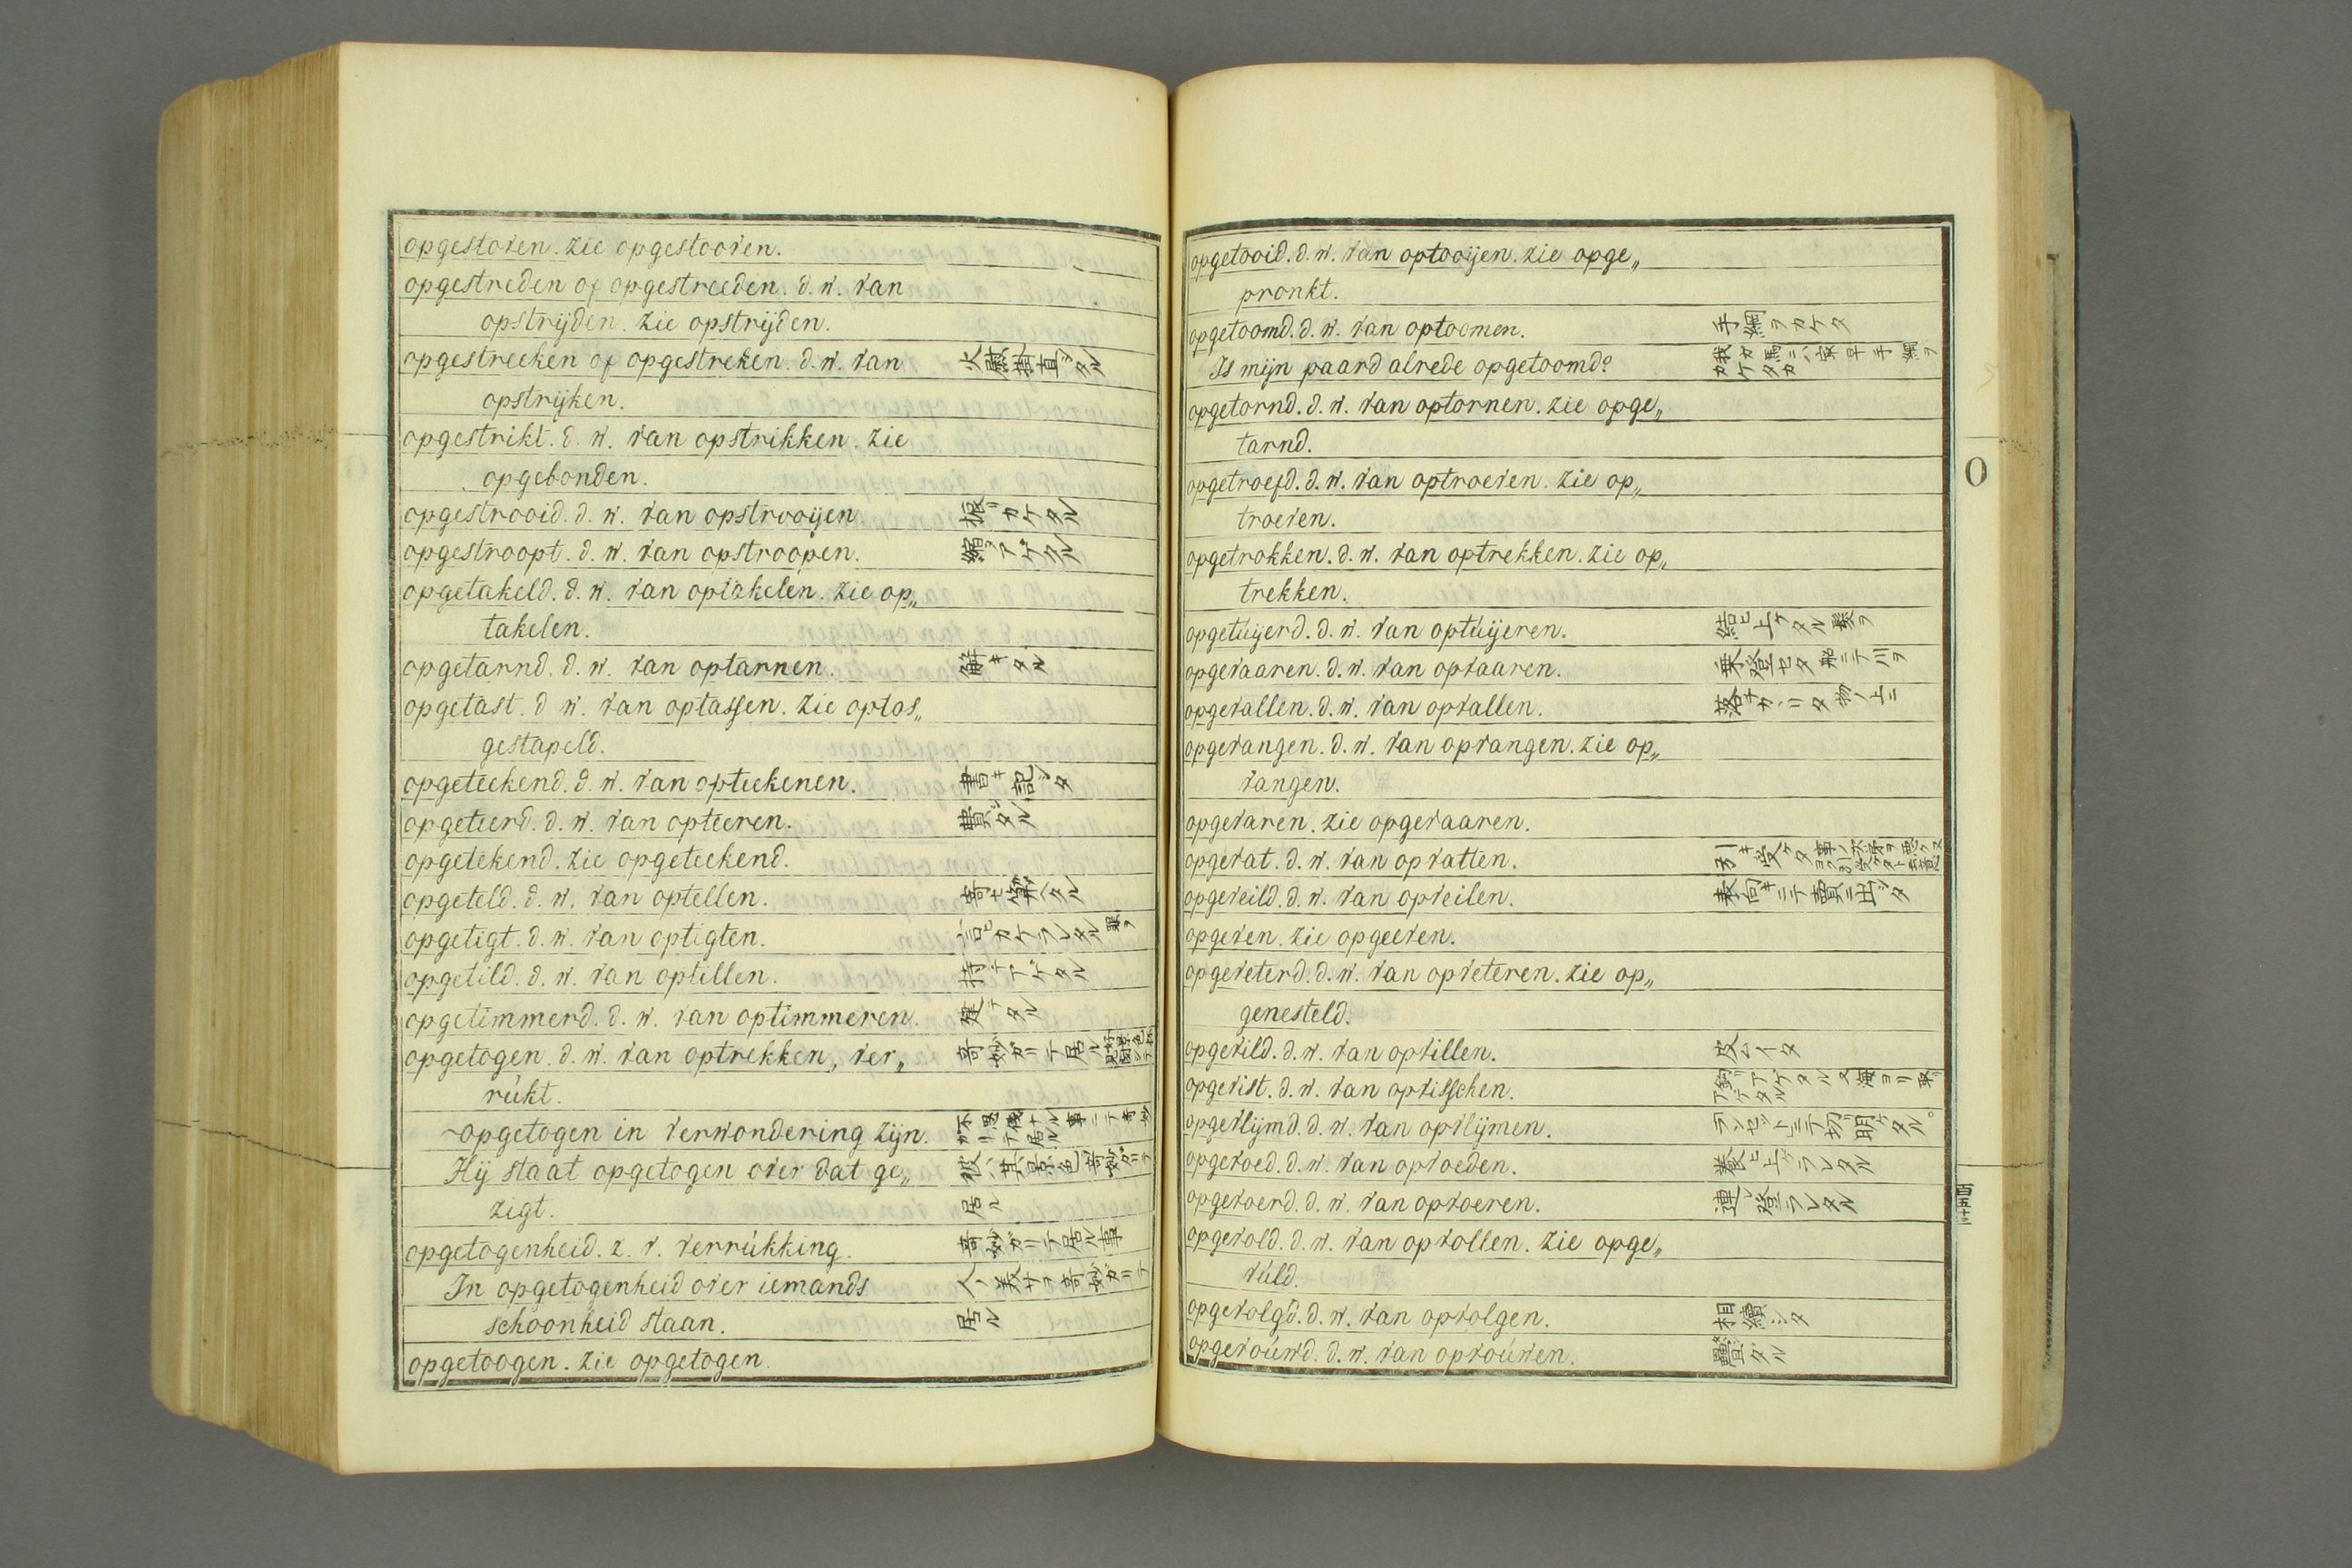 opgestoven. zie opgestooven.
opgestreden of opgestreeden. d. w. van
opstrijden. zie opstrijden.
opgestreeken of opgestreken. d. w. van 火熨掛直シタル
opstrijken.
opgestrikt. d. w. van opstrikken. zie
opgebonden.
opgestrooid. d. w. van opstrooijen. 振リカケタル
opgestroopt. d. w. van opstroopen. 縮アゲタル
opgetakeld. d. w. van optakelen. zie op„
takelen.
opgetarnd. d. w. van optarnen. 解キタル
opgetast. d w. van optassen. zie optas„
gestapeld.
opgeteekend. d. w. van opteekenen. 書キ記シタ
opgeteerd. d. w. van opteeren. 費タル
opgetekend. zie opgeteekend.
opgeteld. d. w. van optellen. 寄セ算ヘタル
opgetigt. d. w. van optigten. 言ヒカケラレタル
opgetild. d. w. van optillen. 持チアゲタル
opgetimmerd. d. w. van optimmeren. 建テタル
opgetogen. d. w. van optrekken, ver„ 奇妙ガリテ居ル
rúkt.
opgetogen in verwondering zijn. 不思儀ナル事ニテ奇妙ガリテ居ル
Hij staat opgetogen over dat ge„ 彼ハ其景色ヲ奇妙ガリテ
zigt. 居ル
opgetogenheid. z. v. verrúkking. 奇妙ガリテ居ル事
In opgetogenheid over iemands 人ノ美サヲ奇妙ガリテ
schoonheid staan. 居ル
opgetoogen. zie opgetogen.
opgetooid. d. w. van optooijen. zie opge„
pronkt.
opgetoomd. d. w. van optoomen. 手綱ヲカケタ
Is mijn paard alrede opgetoomd? 我ガ馬ニハ最早手綱ヲカケタカ
opgetornd. d. w. van optornen. zie opge„
tarnd.
opgetroefd. d. w. van optroeven. zie op„
troeven.
opgetrokken. d. w. van optrekken. zie op„
trekken.
opgetúijerd. d. w. van optúijeren. 結ヒ上ケタル髪ヲ
opgevaaren. d. w. van opvaaren. 乗登セタ船ニテ川ヲ
opgevallen. d. w. van opvallen. 落チカヽリタ物ノ上ニ
opgevangen. d. w. van opvangen. zie op„
vangen.
opgevaren. zie opgevaaren.
opgevat. d. w. van opvatten. 引キ受ケタ事ノ次第ヲ
opgeveild. d. w. van opveilen. 表向キニテ賣ニ出シタ
opgeven. zie opgeeven.
opgeveterd. d. w. van opveteren. zie op„
genesteld.
opgevild. d. w. van opvillen. 皮ムイタ
opgevist. d. w. van opvisschen. 釣リアゲタル又海ヨリ取リアゲタル
opgevlijmd. d. w. van opvlijmen. ランセットニテ切明ケタル。
opgevoed. d. w. van opvoeden. 養ヒ上ゲラレタル
opgevoerd. d. w. van opvoeren. 連レ登ラレタル
opgevold. d. w. van opvollen. zie opge„
vúld.
opgevolgd. d. w. van opvolgen. 相續シタ
opgevoúwd. d. w. van opvoúwen. 疊ミタル
O